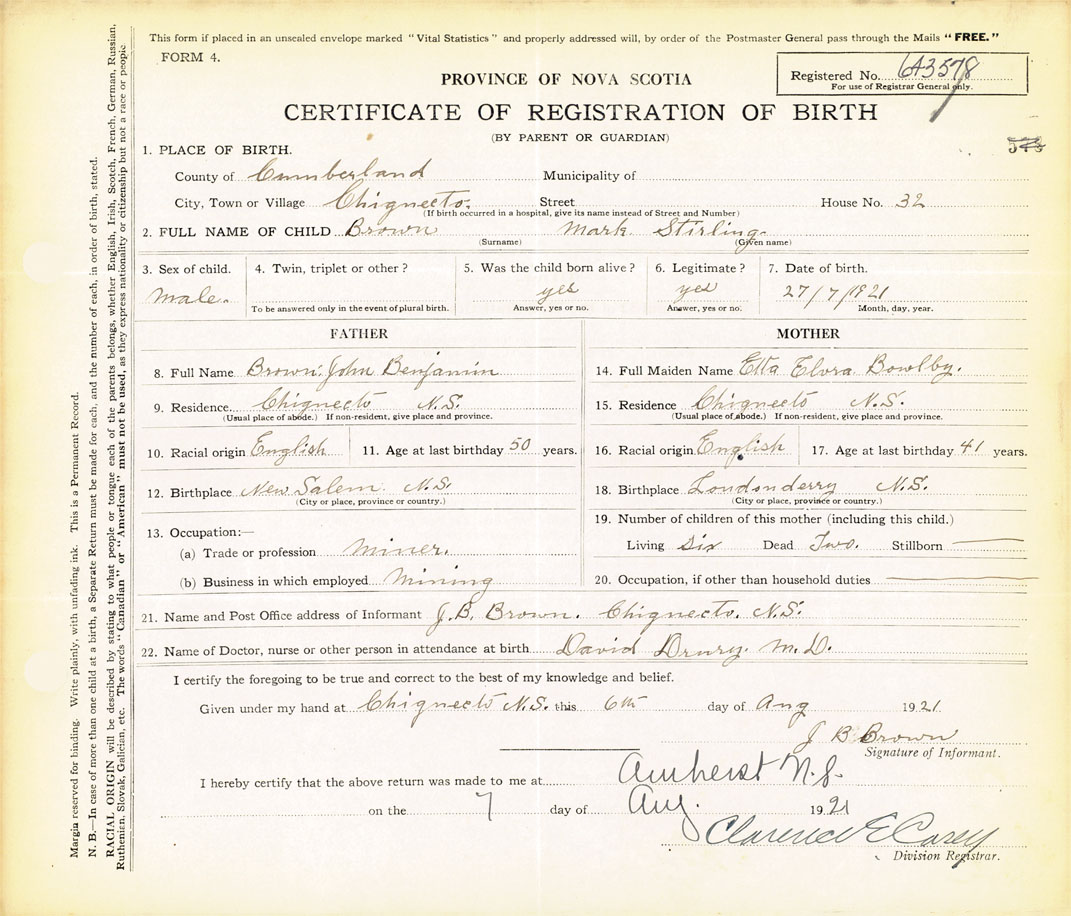 This form if placed in an unsealed envelope marked "Vital Statistics" and properly addressed will, by order of the Postmaster General pass through the Mails "FREE."
FORM 4.
Registered No. 643578
For use of Registrar General only.
PROVINCE OF NOVA SCOTIA
CERTIFICATE OF REGISTRATION OF BIRTH
(BY PARENT OR GUARDIAN)
1. PLACE OF BIRTH.
County of Cumberland Municipality of
City, Town or Village Chignecto. Street House No. 32
(If birth occurred in a hospital, give its name instead of Street and Number)
2. FULL NAME OF CHILD Brown Mark Stirling.
(Surname) (Given name)
3. Sex of child. 4. Twin, triplet or other? 5. Was the child born alive? 6. Legitimate? 7. Date of birth.
Male. yes yes 27/7/1921
To be answered only in the event of plural birth. Answer, yes or no. Answer, yes or no. Month, day, year.
FATHER
8. Full Name Brown. John Benjamin
9. Residence Chignecto N.S.
(Usual place of abode.) If non-resident, give place and province.
10. Racial origin English 11. Age at last birthday 50 years.
12. Birthplace New Salem N.S.
(City or place, province or country.)
13. Occupation:—
(a) Trade or profession Miner.
(b) Business in which employed Mining
MOTHER
14. Full Maiden Name Etta Elvra Bowlby.
15. Residence Chignecto N.S.
(Usual place of abode.) If non-resident, give place and province.
16. Racial origin English 17. Age at last birthday 41 years.
18. Birthplace Londonderry N.S.
(City or place, province or country.)
19. Number of children of this mother (including this child.)
Living Six Dead Two. Stillborn
20. Occupation, if other than household duties
21. Name and Post Office address of Informant J.B. Brown. Chignecto. N.S.
22. Name of Doctor, nurse or other person in attendance at birth David Drury. M.D.
I certify the foregoing to be true and correct to the best of my knowledge and belief.
Given under my hand at Chignecto N.S. this 6th day of Aug 1921
J B Brown
Signature of Informant.
I hereby certify that the above return was made to me at Amherst N.S.
on the 7 day of Aug. 1921
Clarence E Casey
Division Registrar.
Margin reserved for binding. Write plainly, with unfading ink. This is a Permanent Record.
N. B.—In case of more than one child at a birth, a Separate Return must be made for each, and the number of each, in order of birth, stated.
RACIAL ORIGIN will be described by stating to what people or tongue each of the parents belongs, whether English, Irish, Scotch, French, German, Russian,
Ruthenien, Slovak, Galician, etc. The words "Canadian" or "American" must not be used, as they express nationality or citizenship but not a race or people